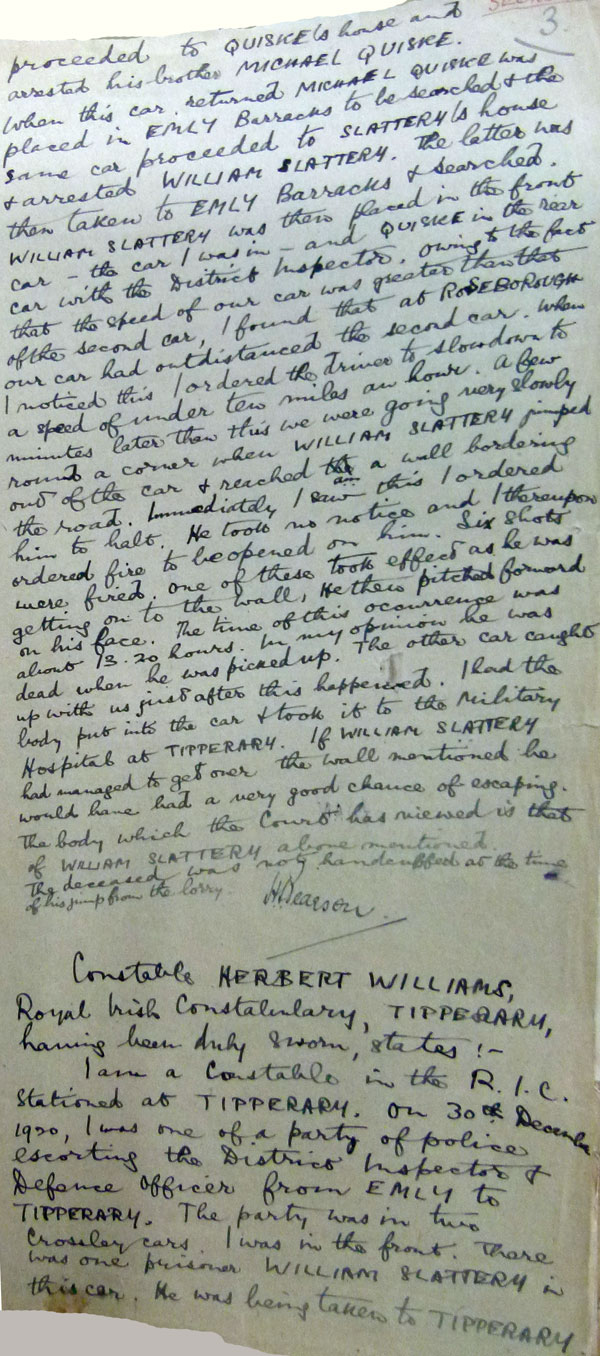 3.
proceeded to QUISKE's house and
arrested his brother MICHAEL QUISKE.
When this car returned MICHAEL QUISKE was
placed in EMLY Barracks to be searched & the
same car proceeded to SLATTERY's house
& arrested WILLIAM SLATTERY. The latter was
then taken to EMLY Barracks & searched.
WILLIAM SLATTERY was then placed in the front
car – the car I was in – and QUISKE in the rear
car with the District Inspector. Owing to the fact
that the speed of our car was greater than that
of the second car, I found that at ROSEBOROUGH
our car had outdistanced the second car. When
I noticed this I ordered the driver to slow down to
a speed of under ten miles an hour. A few
minutes later than this we were going very slowly
round a corner when WILLIAM SLATTERY jumped
out of the car & reached a wall bordering
the road. Immediately I saw this I ordered
him to halt. He took no notice and I thereupon
ordered fire to be opened on him. Six shots
were fired. One of these took effect as he was
getting on to the wall, He then pitched forward
on his face. The time of this ocurrence was
about 13.20 hours. In my opinion he was
dead when he was picked up. The other car caught
up with us just after this happened. I had the
body put into the car & took it to the Military
Hospital at TIPPERARY. If WILLIAM SLATTERY
had managed to get over the wall mentioned he
would have had a very good chance of escaping.
The body which the Court has viewed is that
of WILLIAM SLATTERY above mentioned.
The deceased was not handcuffed at the time
of his jump from the lorry. H Pearson.
Constable HERBERT WILLIAMS,
Royal Irish Constabulary, TIPPERARY,
having been duly sworn, states :-
I am a Constable in the R.I.C.
stationed at TIPPERARY. On 30th December
1920, I was one of a party of police
escorting the District Inspector &
Defence Officer from EMLY to
TIPPERARY. The party was in two
Crossley cars. I was in the front. There
was one prisoner WILLIAM SLATTERY in
this car. He was being taken to TIPPERARY